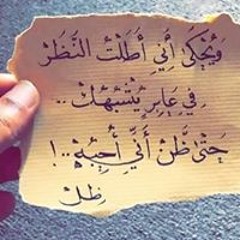 وَيُحْكَى أَنِّي أَطَلْتُ النَّظَرَ
فِي عَابِرٍ يُشْبِهُكَ ..
حَتَّى ظَنَّ أَنِّي أُحِبُّهُ ..!
ظل